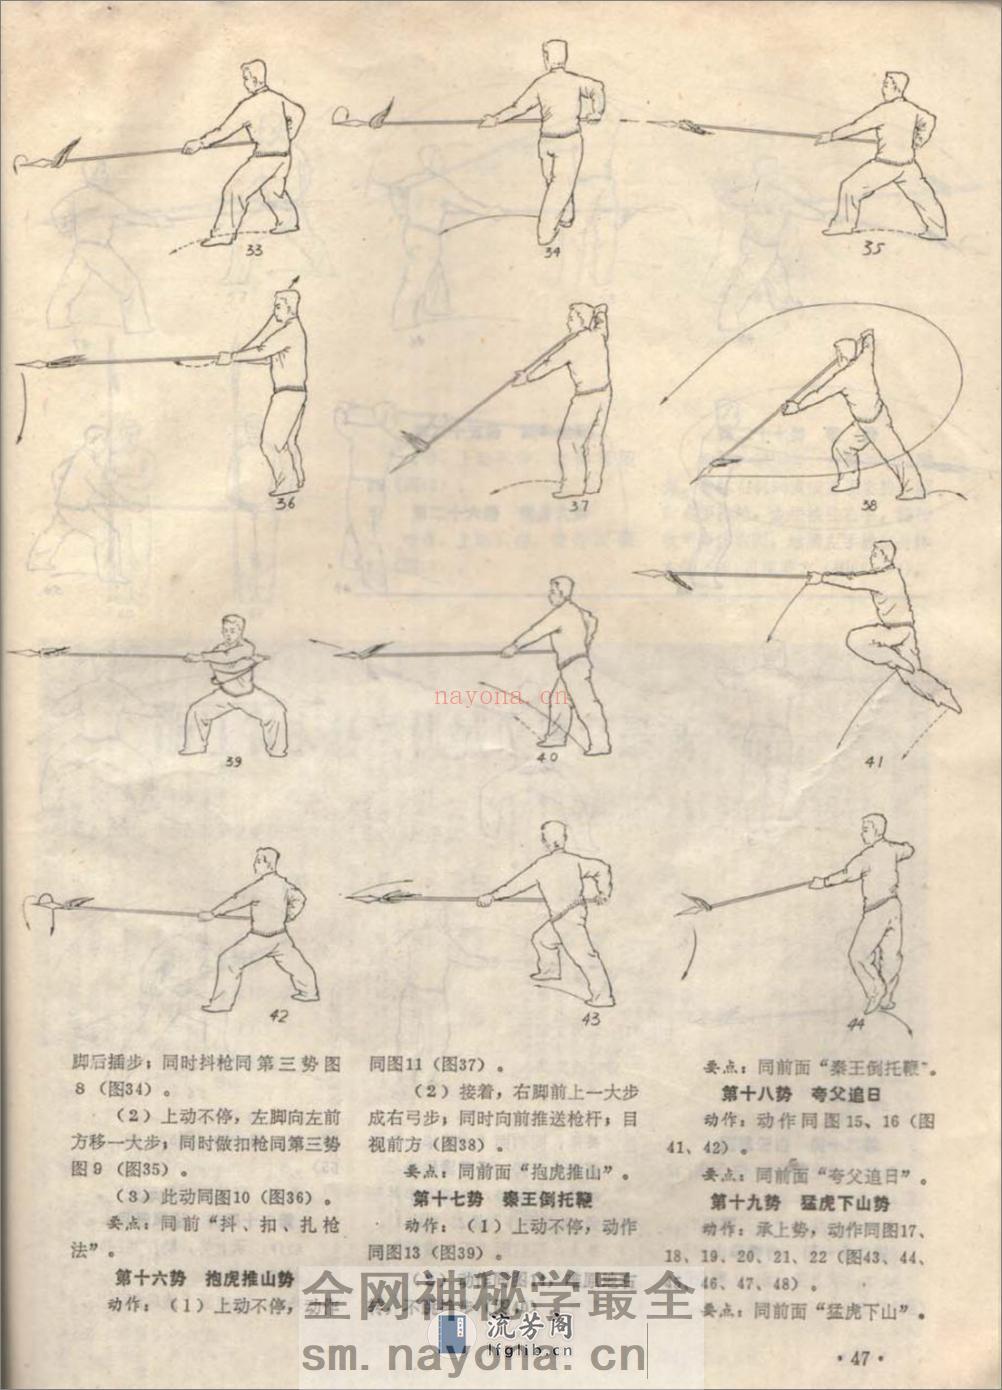 33
34
35
36
37
38
39
40
41
42
43
44
nayona.cn
脚后插步；同时抖枪同第三势图
8（图34）。
（2）上动不停，左脚向左前
方移一大步；同时做扣枪同第三势
图9（图35）。
（3）此动同图10（图36）。
要点：同前“抖、扣、扎枪
法”。
第十六势 抱虎推山势
动作：（1）上动不停，动作
同图11（图37）。
（2）接着，右脚前上一大步
成右弓步；同时向前推送枪杆；目
视前方（图38）。
要点：同前面“抱虎推山”。
第十七势 秦王倒托鞭
动作：（1）上动不停，动作
同图13（图39）。
要点：同前面“秦王倒托鞭”。
第十八势 夸父追日
动作：动作同图15、16（图
41、42）。
要点：同前面“夸父追日”。
第十九势 猛虎下山势
动作：承上势，动作同图17、
18、19、20、21、22（图43、44、
45、46、47、48）。
要点：同前面“猛虎下山”。
·47·
全网神秘学最全
流芳阁
lfglib.cn
sm.nayona.cn